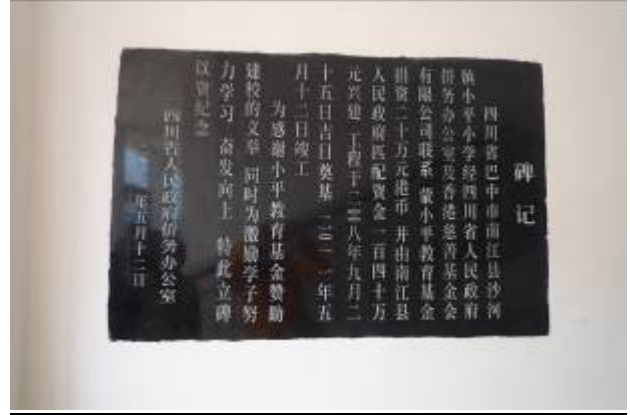 碑记
四川省巴中市南江县沙河
镇小平小学经四川省人民政府
侨务办公室及香港慈善基金会
有限公司联系 蒙小平教育基金
捐资二十万元港币 并由南江县
人民政府匹配资金一百四十万
元兴建 工程于二〇〇八年九月二
十五日吉日奠基 二〇一一年五
月十二日竣工
为感谢小平教育基金赞助
建校的义举 同时为激励学子努
力学习 奋发向上 特此立碑
以资纪念
四川省人民政府侨务办公室
年五月十二日